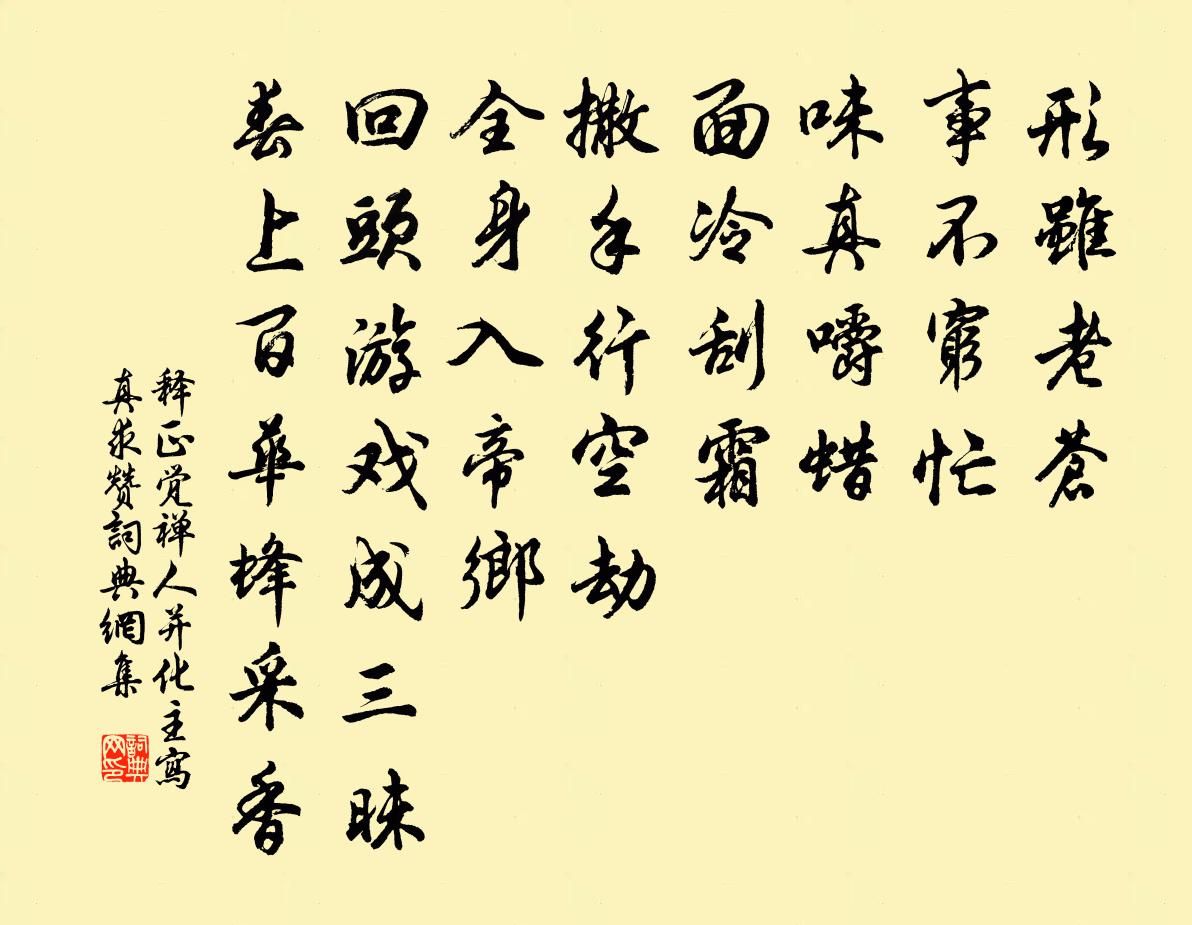 形雖老蒼
事不窮忙
味真嚼蜡
面冷刮霜
撒手行空劫
全身入帝鄉
回頭游戏成三昧
春上百華蜂采香
释正觉禅人并化主寫
真求赞詞典網集
詞典網印